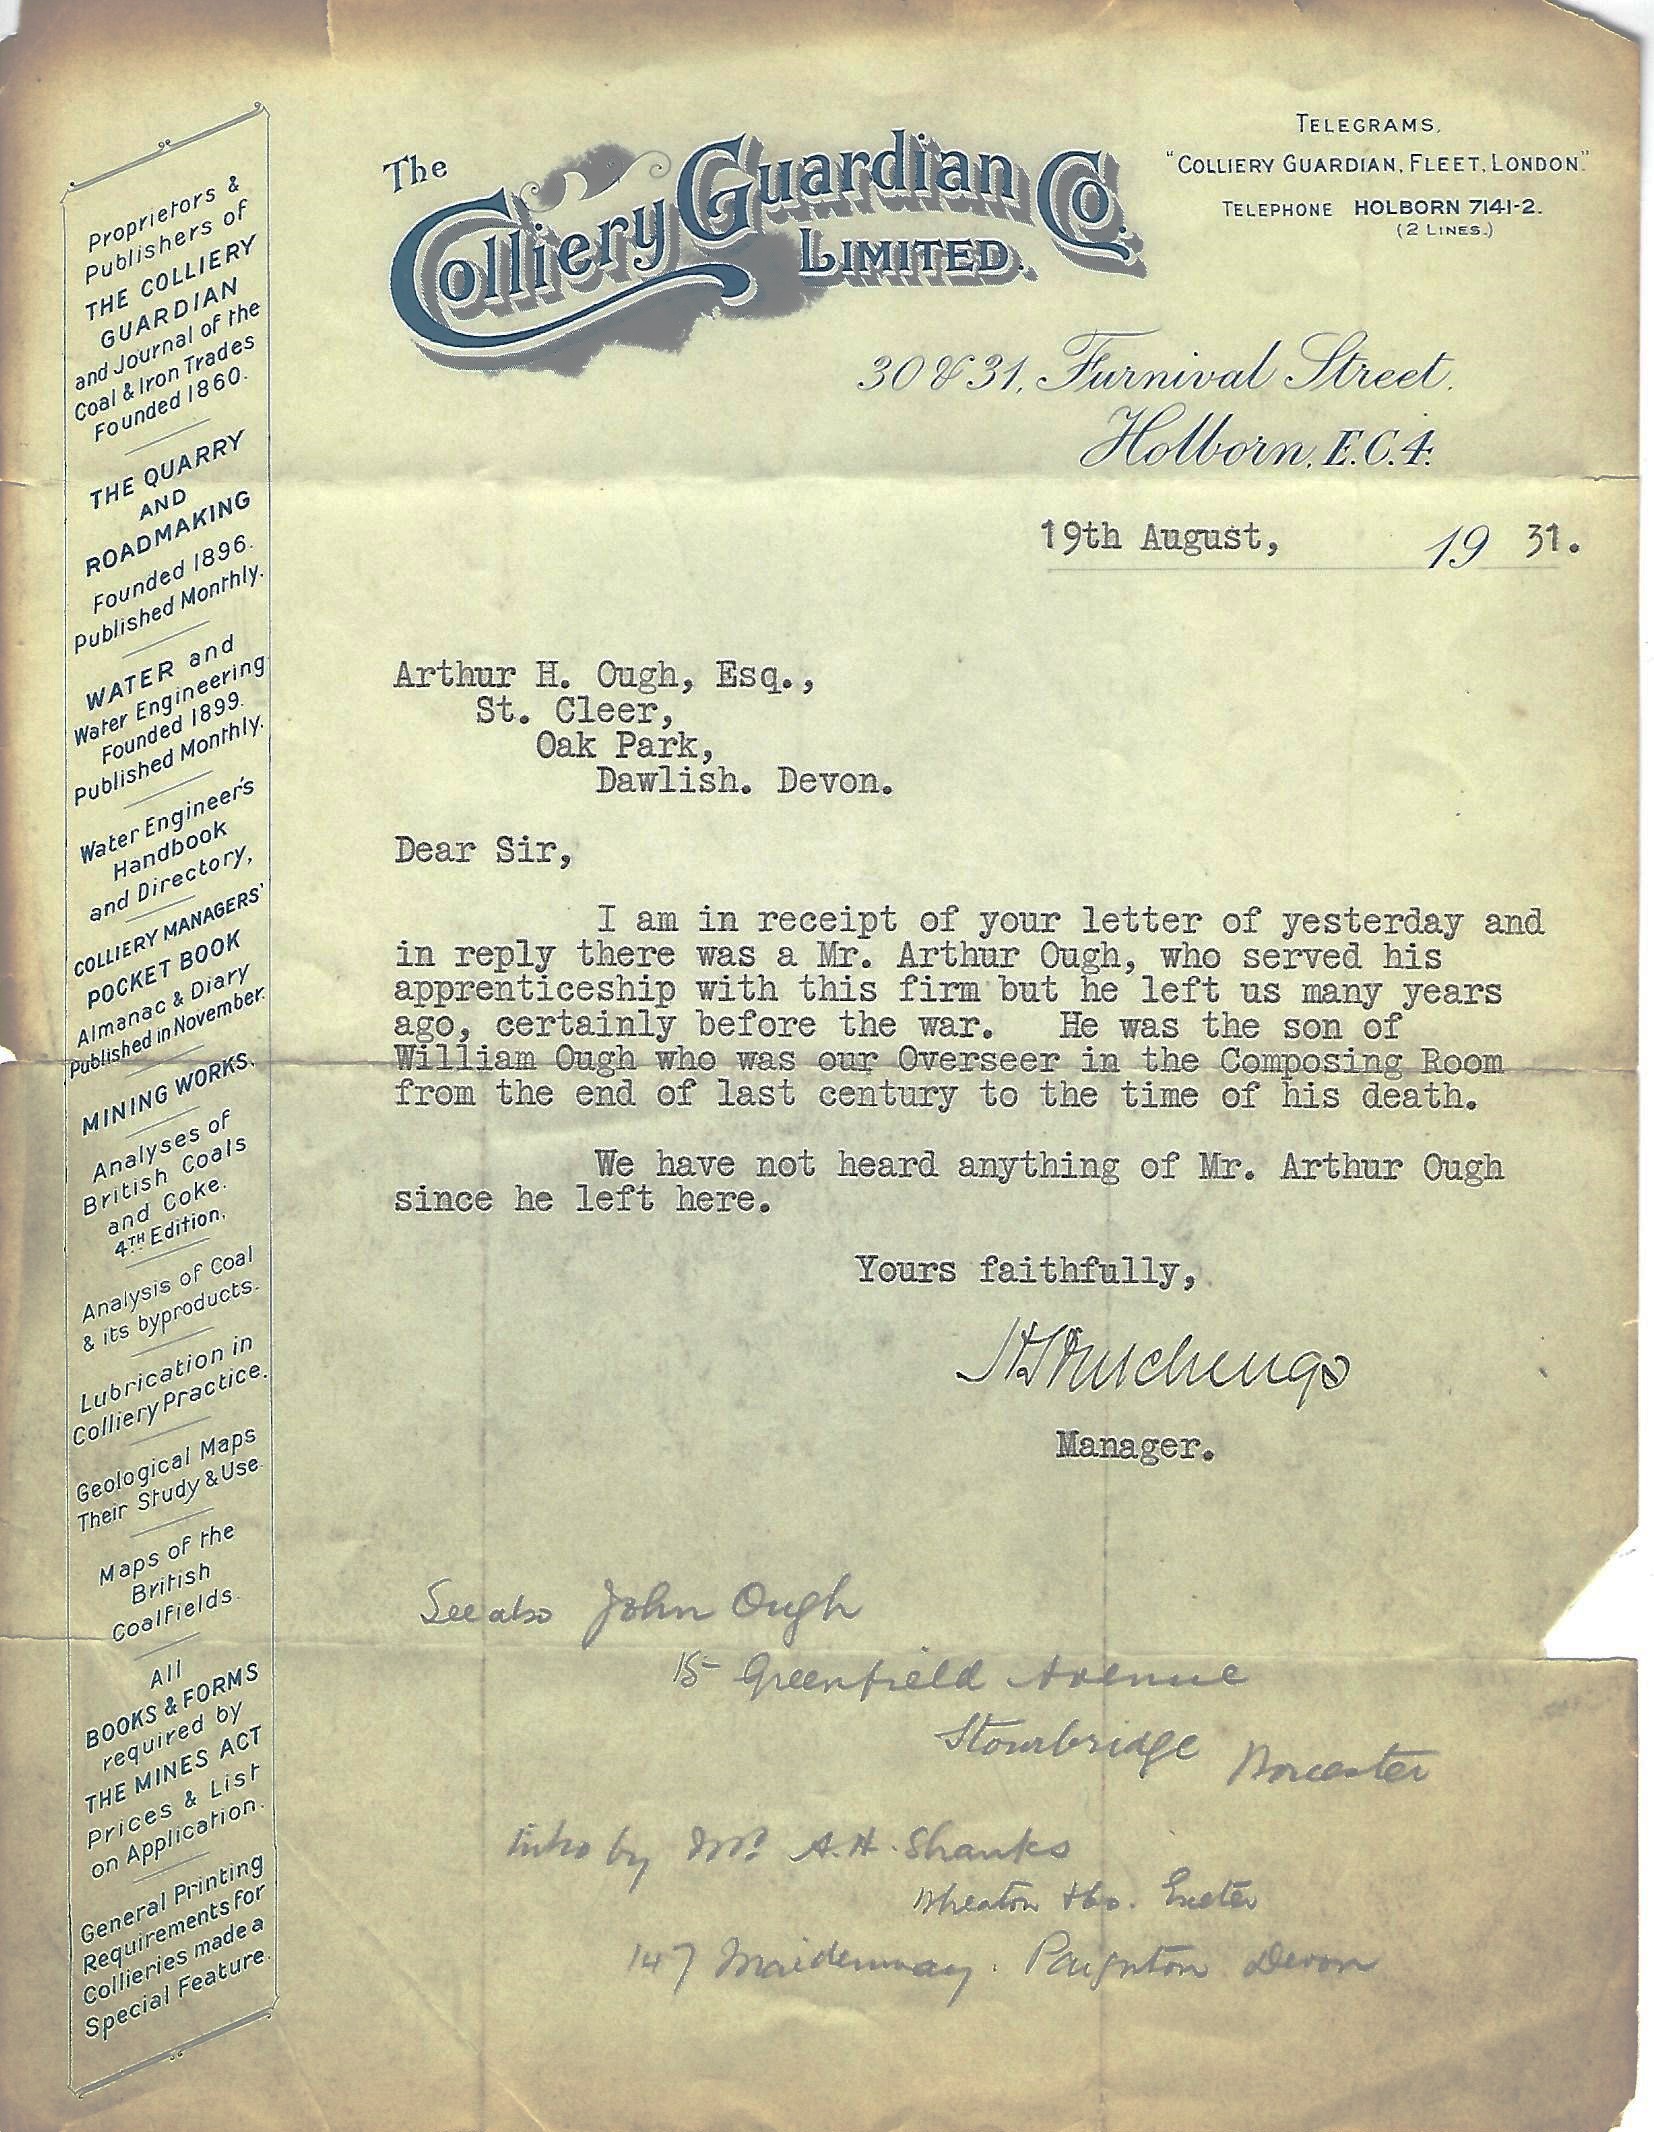 The
Colliery Guardian Co.
LIMITED.
TELEGRAMS.
"COLLIERY GUARDIAN, FLEET, LONDON."
TELEPHONE HOLBORN 7141-2.
(2 LINES.)
30 & 31, Furnival Street.
Holborn, E.C.4.
19th August, 19 31.
Proprietors &
Publishers of
THE COLLIERY
GUARDIAN
and Journal of the
Coal & Iron Trades
Founded 1860.
THE QUARRY
AND
ROADMAKING
Founded 1896.
Published Monthly.
WATER and
Water Engineering
Founded 1899.
Published Monthly.
Water Engineer's
Handbook
and Directory,
COLLIERY MANAGERS'
POCKET BOOK
Almanac & Diary
Published in November.
MINING WORKS.
Analyses of
British Coals
and Coke.
4TH Edition.
Analysis of Coal
& its byproducts.
Lubrication in
Colliery Practice.
Geological Maps
Their Study & Use
Maps of the
British
Coalfields.
All
BOOKS & FORMS
required by
THE MINES ACT
Prices & List
on Application.
General Printing
Requirements for
Collieries made a
Special Feature.
Arthur H. Ough, Esq.,
St. Cleer,
Oak Park,
Dawlish. Devon.
Dear Sir,
I am in receipt of your letter of yesterday and
in reply there was a Mr. Arthur Ough, who served his
apprenticeship with this firm but he left us many years
ago, certainly before the war. He was the son of
William Ough who was our Overseer in the Composing Room
from the end of last century to the time of his death.
We have not heard anything of Mr. Arthur Ough
since he left here.
Yours faithfully,
Manager.
See also John Ough
15 Greenfield Avenue
Stourbridge Worcester
by Mr. A.H. Shanks
Wheaton & Co. Exeter
147 Maidenway. Paignton Devon